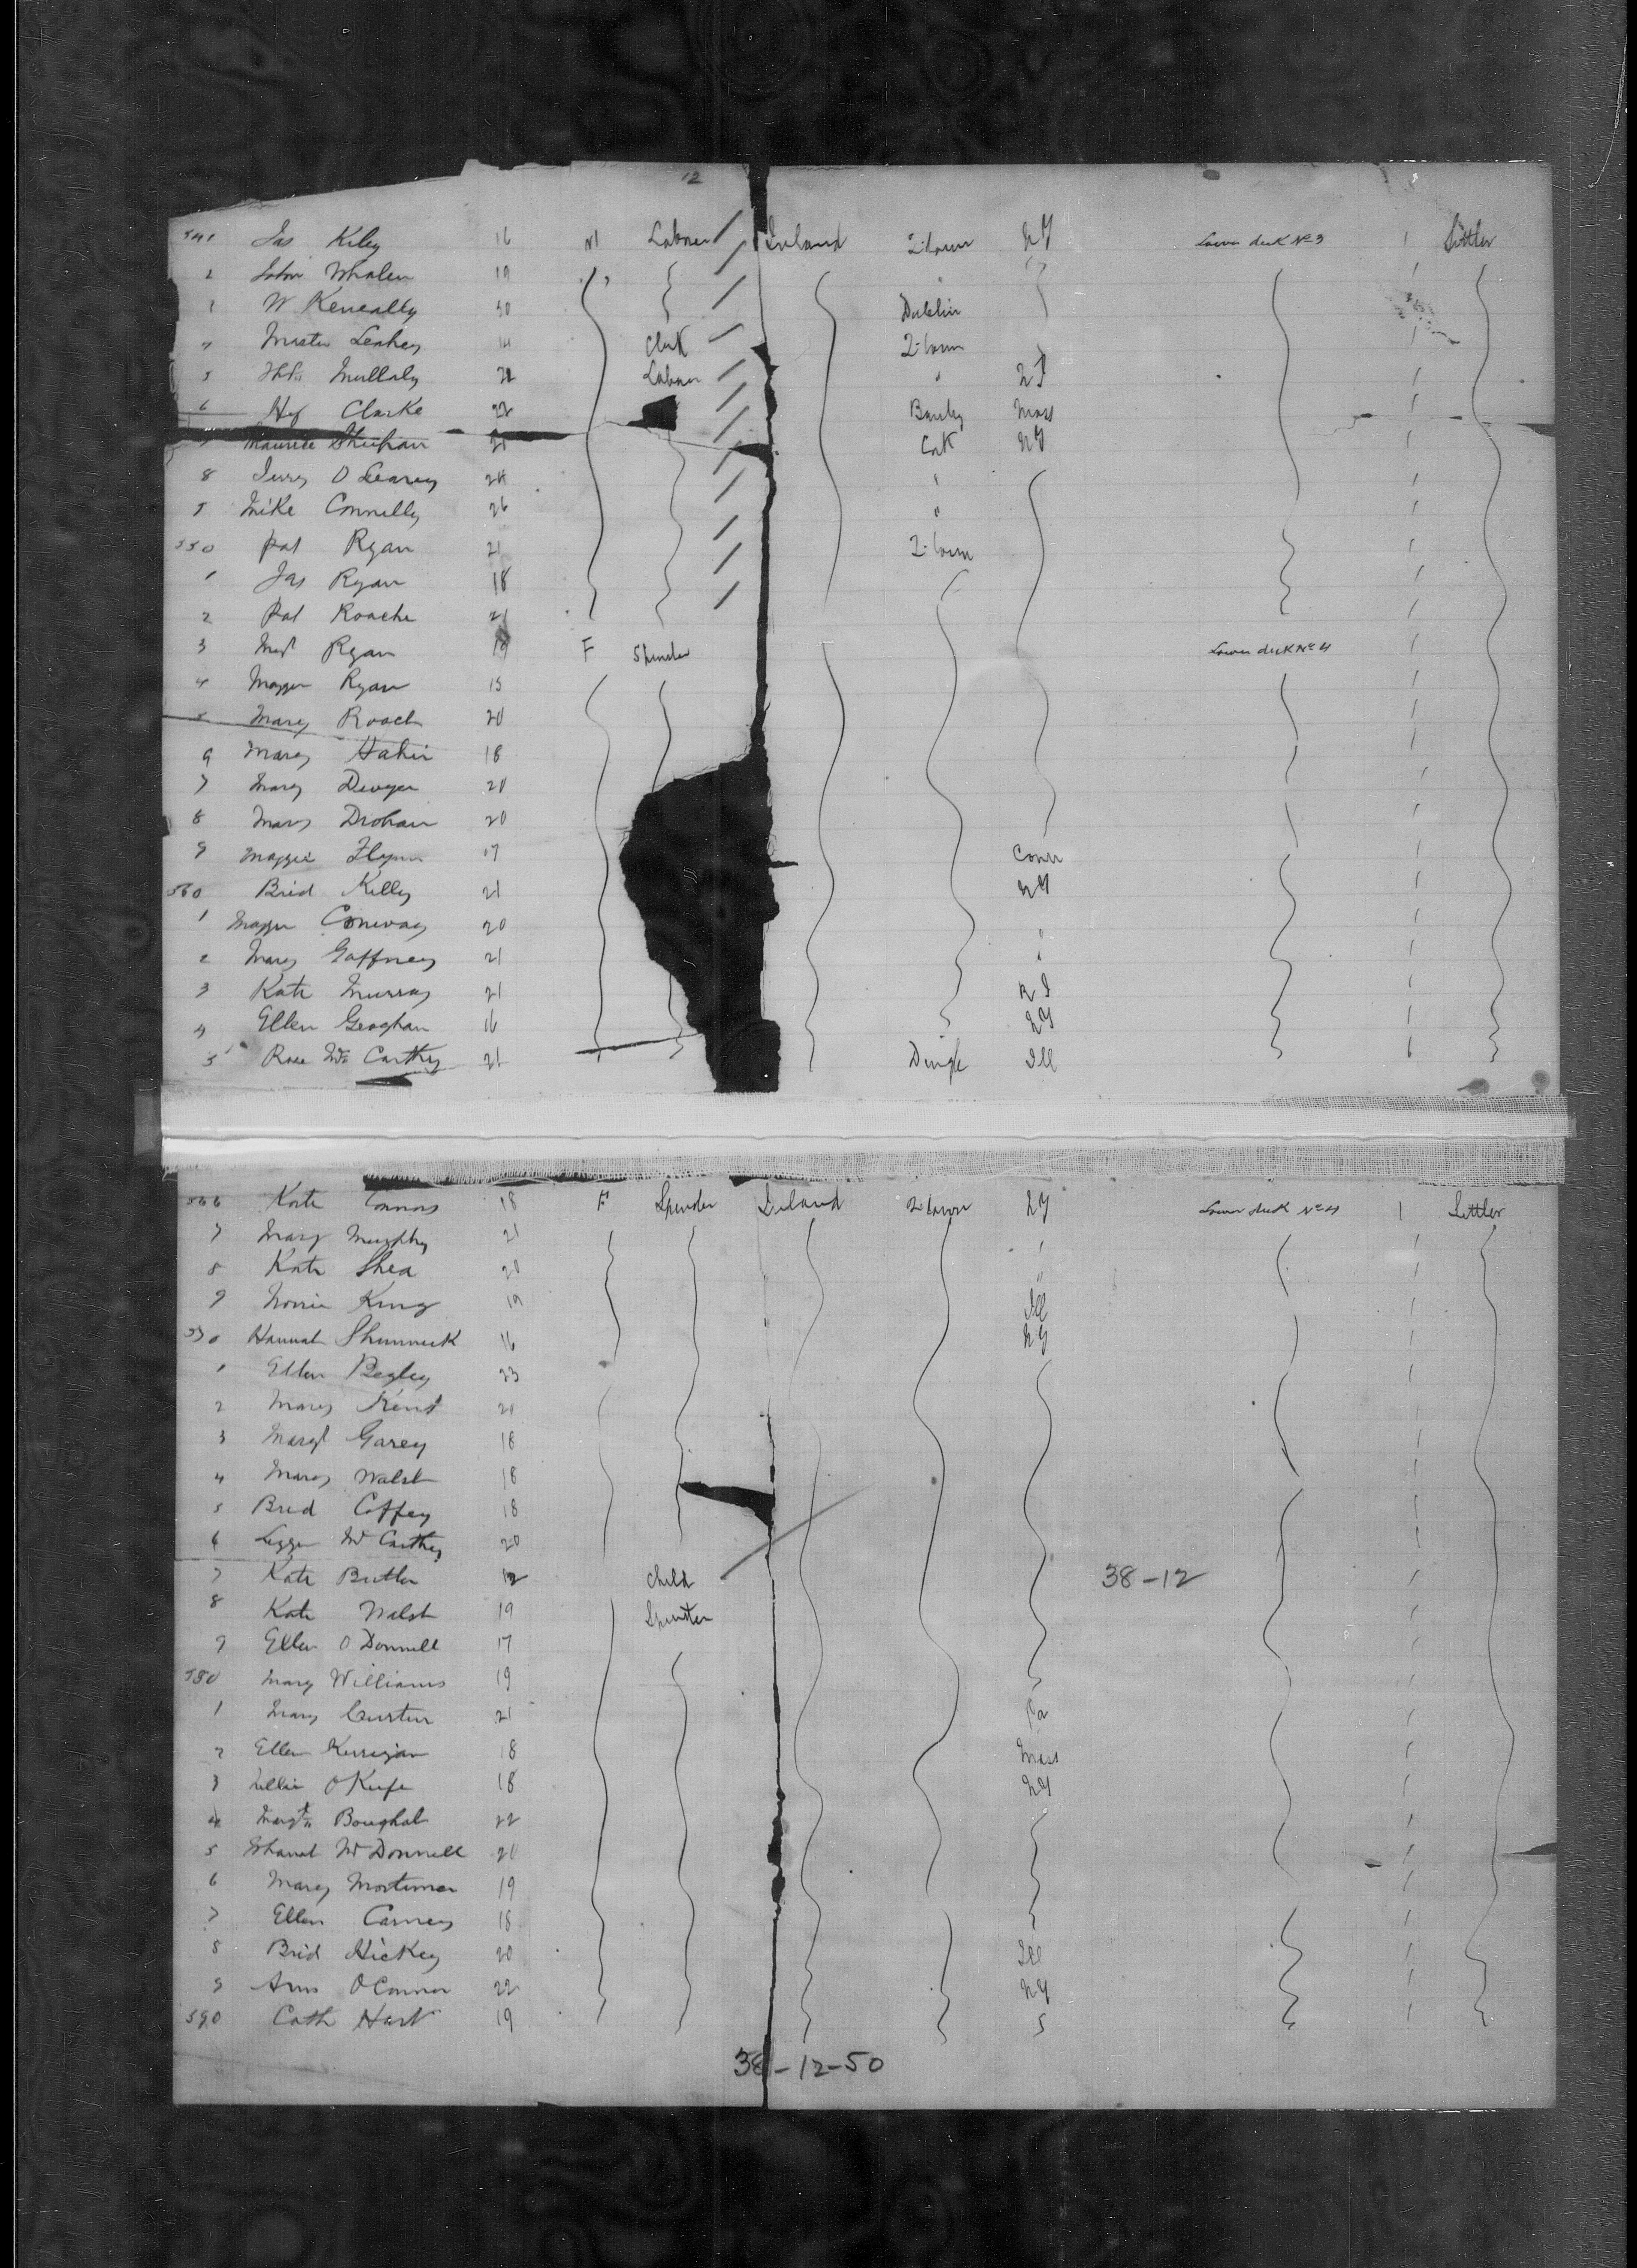 12
541 Jas Kiley 16 M Laborer Ireland Q-town NY Lower deck No 3 1 Settler
2 John Whalen 19 "
W Keneally 30 Dublin
Leahey 14 Clerk Q-town
5 Mullaly 21 Laborer " NJ
6 Hy Clarke 22 Mass
Maurice Sheehan 21 Cork NY
8 O Leary 24 "
9 Mike Connelly 26 "
550 Pat Ryan 21 Q-town
1 Jas Ryan 18
2 Pat Roache 21
3 Ryan F Spinster Lower deck No 4
4 Ryan 15
5 Mary Roach 20
6 Mary 18
7 Mary Dwyer 20
8 Mary Drohan 20
9 Maggie Flynn 17 Conn
560 Brid Kelly 21 NY
1 Conway 20 "
2 Mary Gaffney 21 "
3 Kate Murray 21 R I
4 Ellen Geoghan 16 NY
5 Rose Mc Carthy 21 Dingle Ill
566 Kate Connors 18 F Spinster Ireland Q-town NY Lower deck No 4 1 Settler
7 Mary Murphy 21 "
8 Kate Shea 20 "
9 Norrie King 19 Ill
570 Hannah 16 NY
1 Ellen Begley 23
2 Mary Kent 20
3 Margt Garey 18
4 Mary Walsh 18
5 Brid Coffey 18
6 Mc Carthy 20
7 Kate Butler 12 Child 38-12
8 Kate Walsh 19 Spinster
9 Ellen O Donnell 17
580 Mary Williams 19
1 Mary Curtin 21 Pa
2 Ellen Kerrigan 18 Mass
3 O Keefe 18 NY
4 Margt Boughal 22
5 Mc Donnell 20
6 Mary Mortimer 19
7 Ellen Carney 18
8 Brid Hickey 20 Ill
9 Ann O Connor 22 NY
590 Cath Hart 19
38-12-50